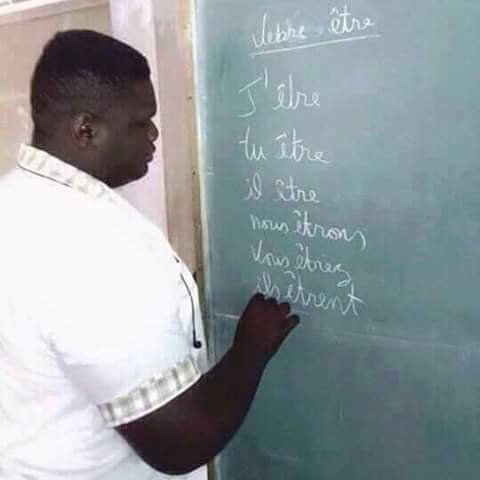 Vebre être
J'être
tu être
il être
nous êtrons
Vous êtriez
ils êtrent